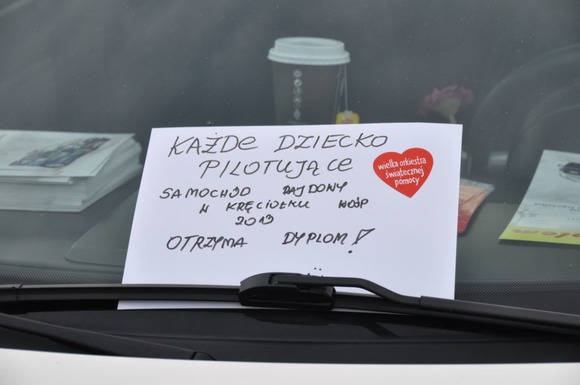 KAŻDE DZIECKO
PILOTUJĄCE
SAMOCHÓD RAJDOWY
W KRĘCIOŁKU WOŚP
2013
OTRZYMA DYPLOM!
wielka orkiestra
świątecznej
pomocy